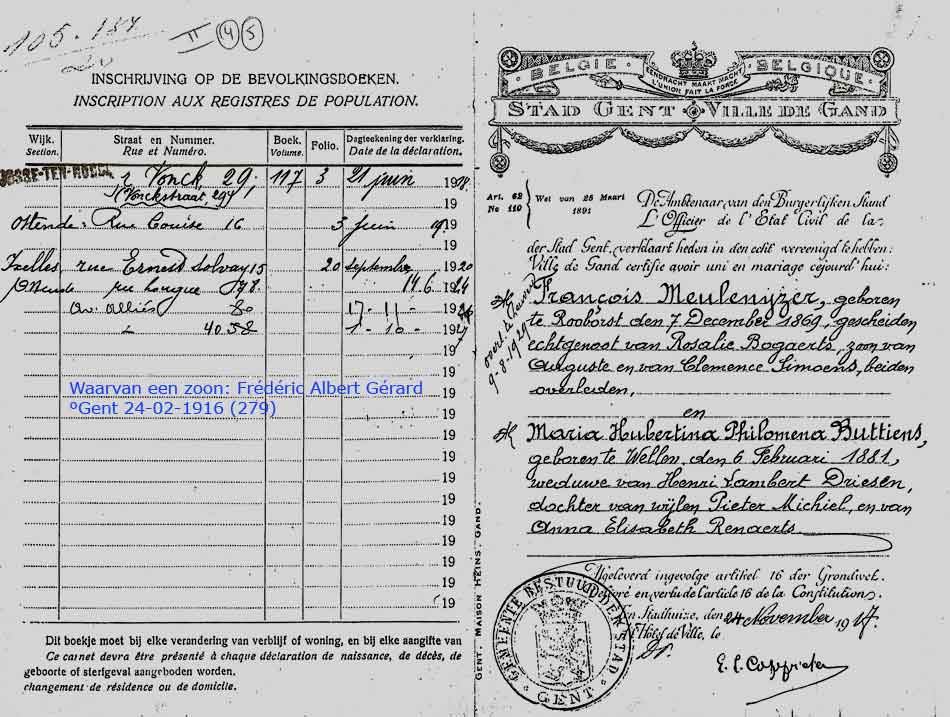 105-184
II 4 5
INSCHRIJVING OP DE BEVOLKINGSBOEKEN.
INSCRIPTION AUX REGISTRES DE POPULATION.
Wijk. Straat en Nummer. Boek. Folio. Dagteekening der verklaring.
Section. Rue et Numéro. Volume. Date de la déclaration.
r Vonck, 29, 117 3 21 juin 1918.
Vonckstraat, 29 19
Ostende Rue Louise 16 3 juin 19
19
Ixelles, rue Ernest Solvay 15 20 Septembre 1920
Ostende rue Longue 78 14 6 1924
Av. Alliés 80 17-11- 19
" 40.58 1-10-1927
19
19
Waarvan een zoon: Frédéric Albert Gérard
19
ºGent 24-02-1916 (279)
19
19
19
19
19
19
19
19
19
19
Dit boekje moet bij elke verandering van verblijf of woning, en bij elke aangifte van
Ce carnet devra être présenté à chaque déclaration de naissance, de décès, de
geboorte of sterfgeval aangeboden worden.
changement de résidence ou de domicile.
GENT. MAISON HEINS. GAND.
BELGIE BELGIQUE
EENDRACHT MAAKT MACHT
L'UNION FAIT LA FORCE
STAD GENT VILLE DE GAND
Art. 62 Wet van 25 Maart
No 110 1891
De Ambtenaar van den Burgerlijken Stand
L'Officier de l'Etat Civil de la
der Stad Gent, verklaart heden in den echt vereenigd te hebben:
Ville de Gand certifie avoir uni en mariage cejourd'hui:
François Meulenyzer, geboren
te Rooborst den 7 December 1869, gescheiden
echtgenoot van Rosalie Bogaerts, zoon van
Auguste en van Clemence Simoens, beiden
overleden,
9-8-1929
en
Maria Hubertina Philomena Buttiens,
geboren te Wellen, den 6 Februari 1881,
weduwe van Henri Lambert Driesen,
dochter van wijlen Pieter Michiel, en van
Anna Elisabeth Renaerts
Afgeleverd ingevolge artikel 16 der Grondwet.
Délivré en vertu de l'article 16 de la Constitution.
Ten Stadhuize, den 24 November 1917.
l'Hôtel de Ville, le
GEMEENTE BESTUUR DER STAD
GENT